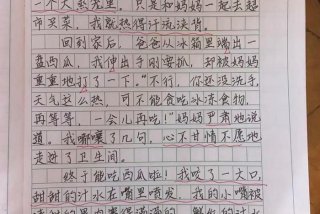 一个大蒸笼里。只是和妈妈一起去超
市买菜，我就热得汁流浃背。
回到家后，爸爸从冰箱里端出一
盘西瓜，我伸出手刚要抓，却被妈妈
重重地打了一下。“不行，你还没洗手，
天气这么热，可不能贪吃冰冻食物，
再等等，一会儿再吃！”妈妈严肃地说
道。我嘟囔了几句，心不甘情不愿地
走进了卫生间。
终于能吃西瓜啦！我咬了一大口，
甜甜的汁水在嘴里喷发，我的小嘴被